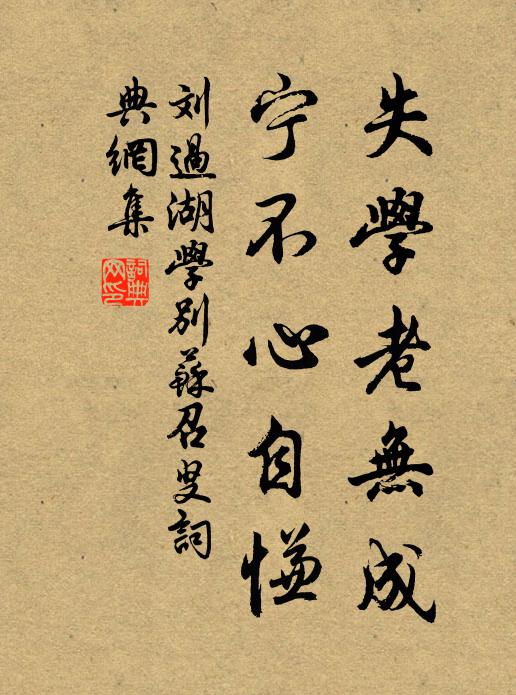 失學老無成
宁不心自慊
刘過湖學别蘇召叟詞
典網集
詞典网印